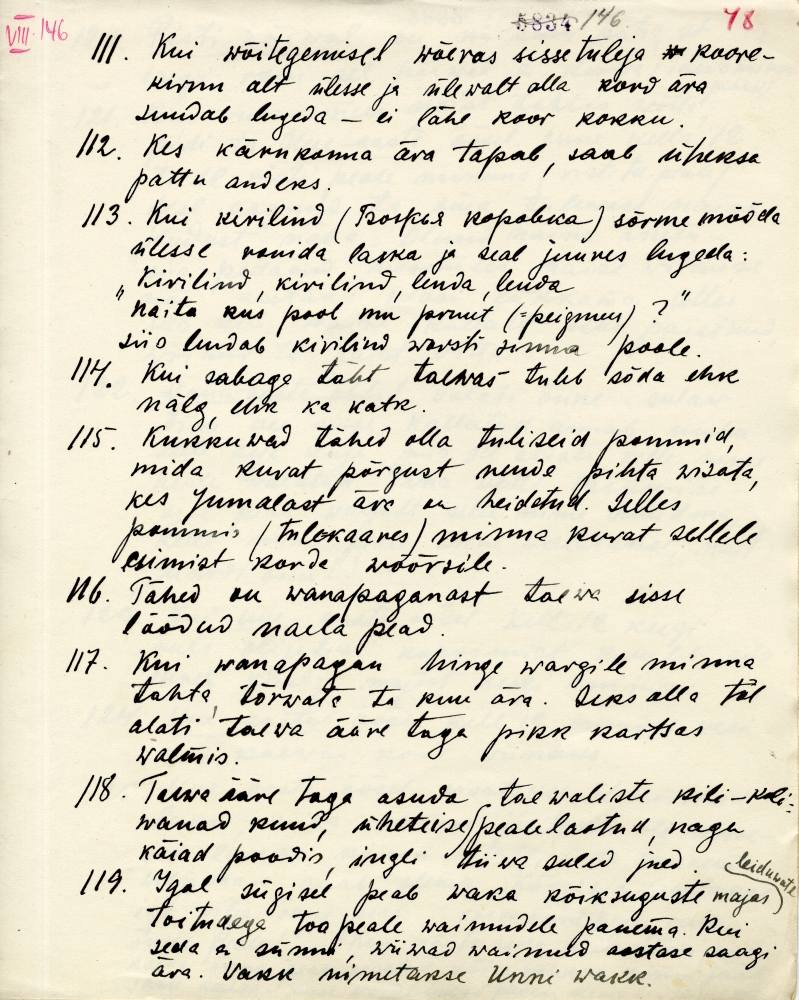 VIII. 146
5834 146. 78
111. Kui wõitegemisel wõeras sissetuleja koore-
kirnu alt ülesse ja ülewalt alla kord ära
suudab lugeda — ei lähe koor kokku.
112. Kes kärnkonna ära tapab, saab üheksa
pattu andeks.
113. Kui kirilind (Божья коровка) sõrme mööda
ülesse ronida laska ja seal juures lugeda:
„Kirilind, kirilind, lenda, lenda
näita kus pool mu pruut (=peigmus) ?"
siis lendab kirilind warsti sinna poole.
114. Kui sabaga täht taewas tuleb sõda ehk
nälg, ehk ka katk.
115. Kukkuwad tähed olla tuliseid pommid,
mida kurat põrgust nende pihta wisata,
kes Jumalast ära on heidetud. Selles
pommis (tulekaares) minna kurat sellele
esimist korda wõõrsile.
116. Tähed on wanapaganast taewa sisse
löödud naela pead.
117. Kui wanapagan hinge wargile minna
tahta, tõrwata ta kuu ära. Seks olla tal
alati taewa ääre taga pikk kartsas
walmis.
118. Taewa ääre taga asuda taewaliste kili-koli:
wanad kuud, üheteise peale laotud, nagu
käiad poodis, ingli tiiwa suled jned.
119. Igal sügisel peab waka kõiksuguste majas leiduwate
toitudega toa peale waimudele panema. Kui
seda ei sünni, wiiwad waimud aastase saagi
ära. Wakk nimetakse Unni wakk.